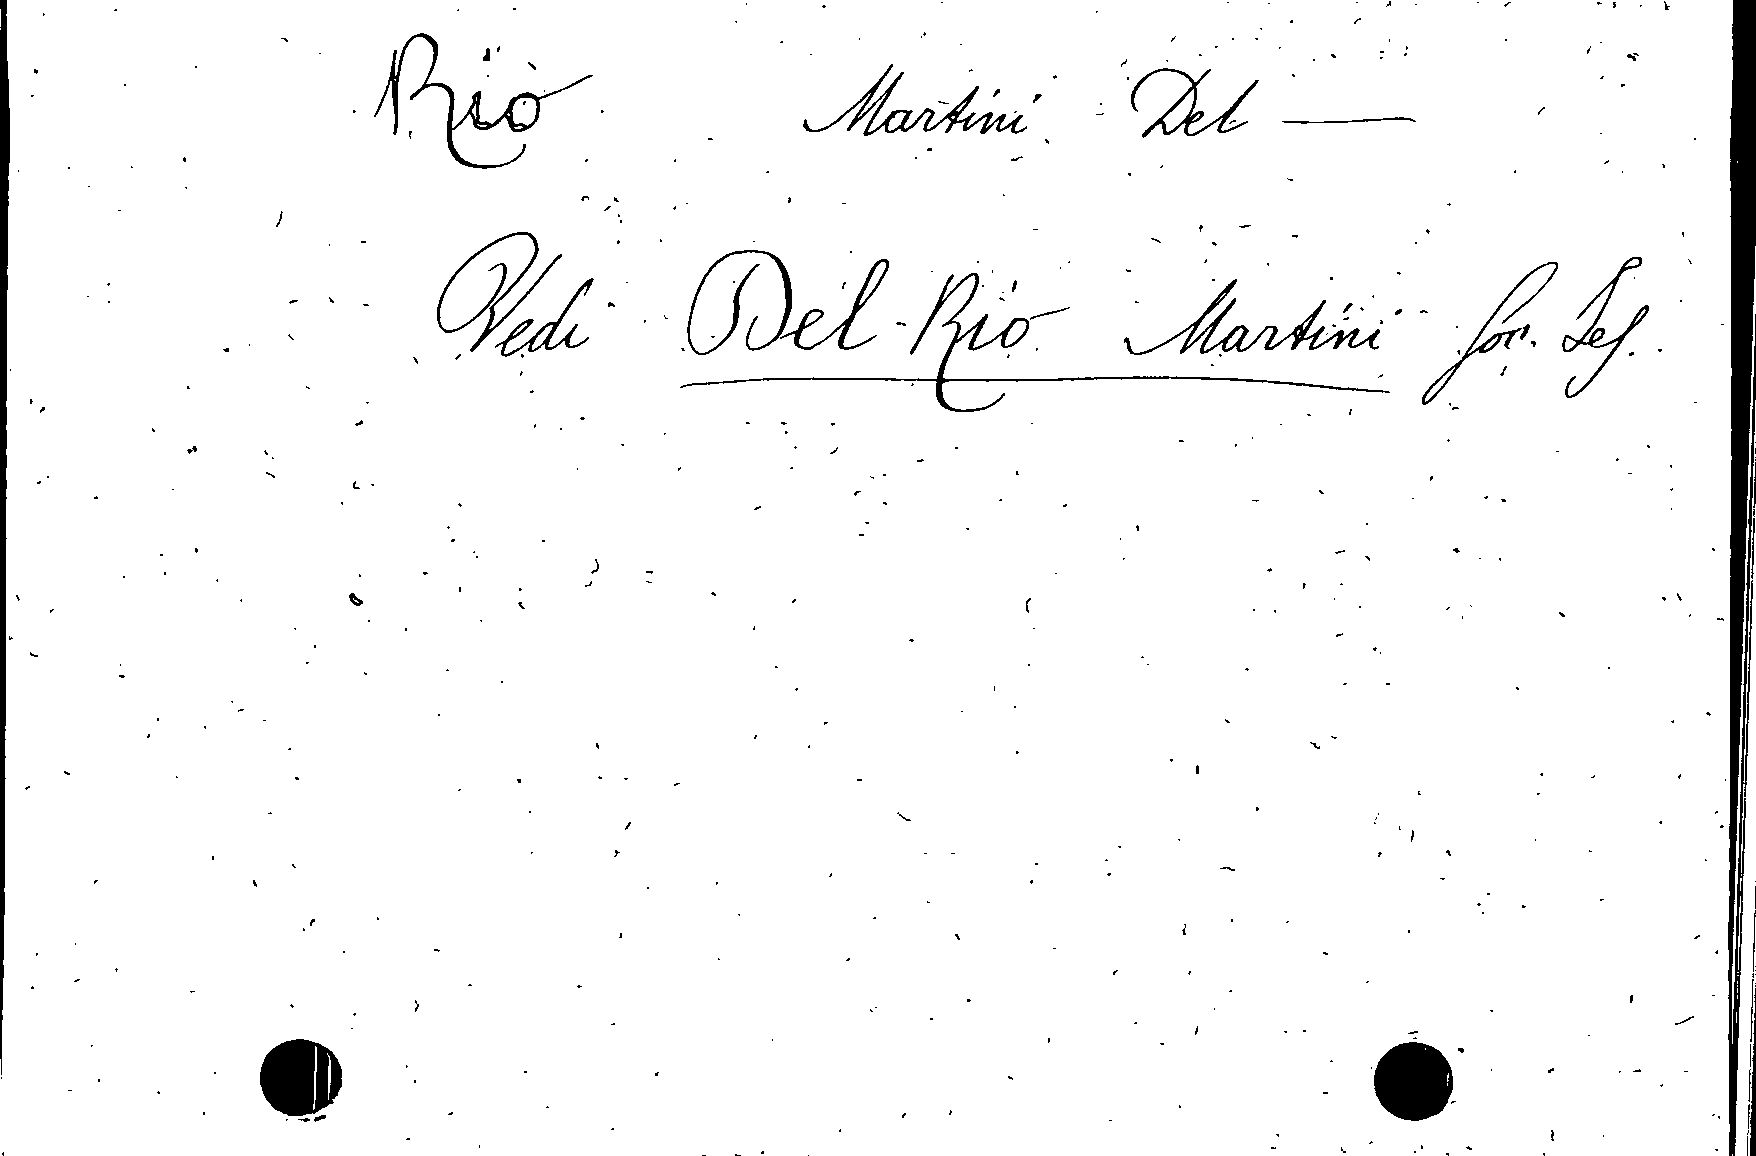 Rio Martini Del —
Vedi Del-Rio Martini Soc. Jes.